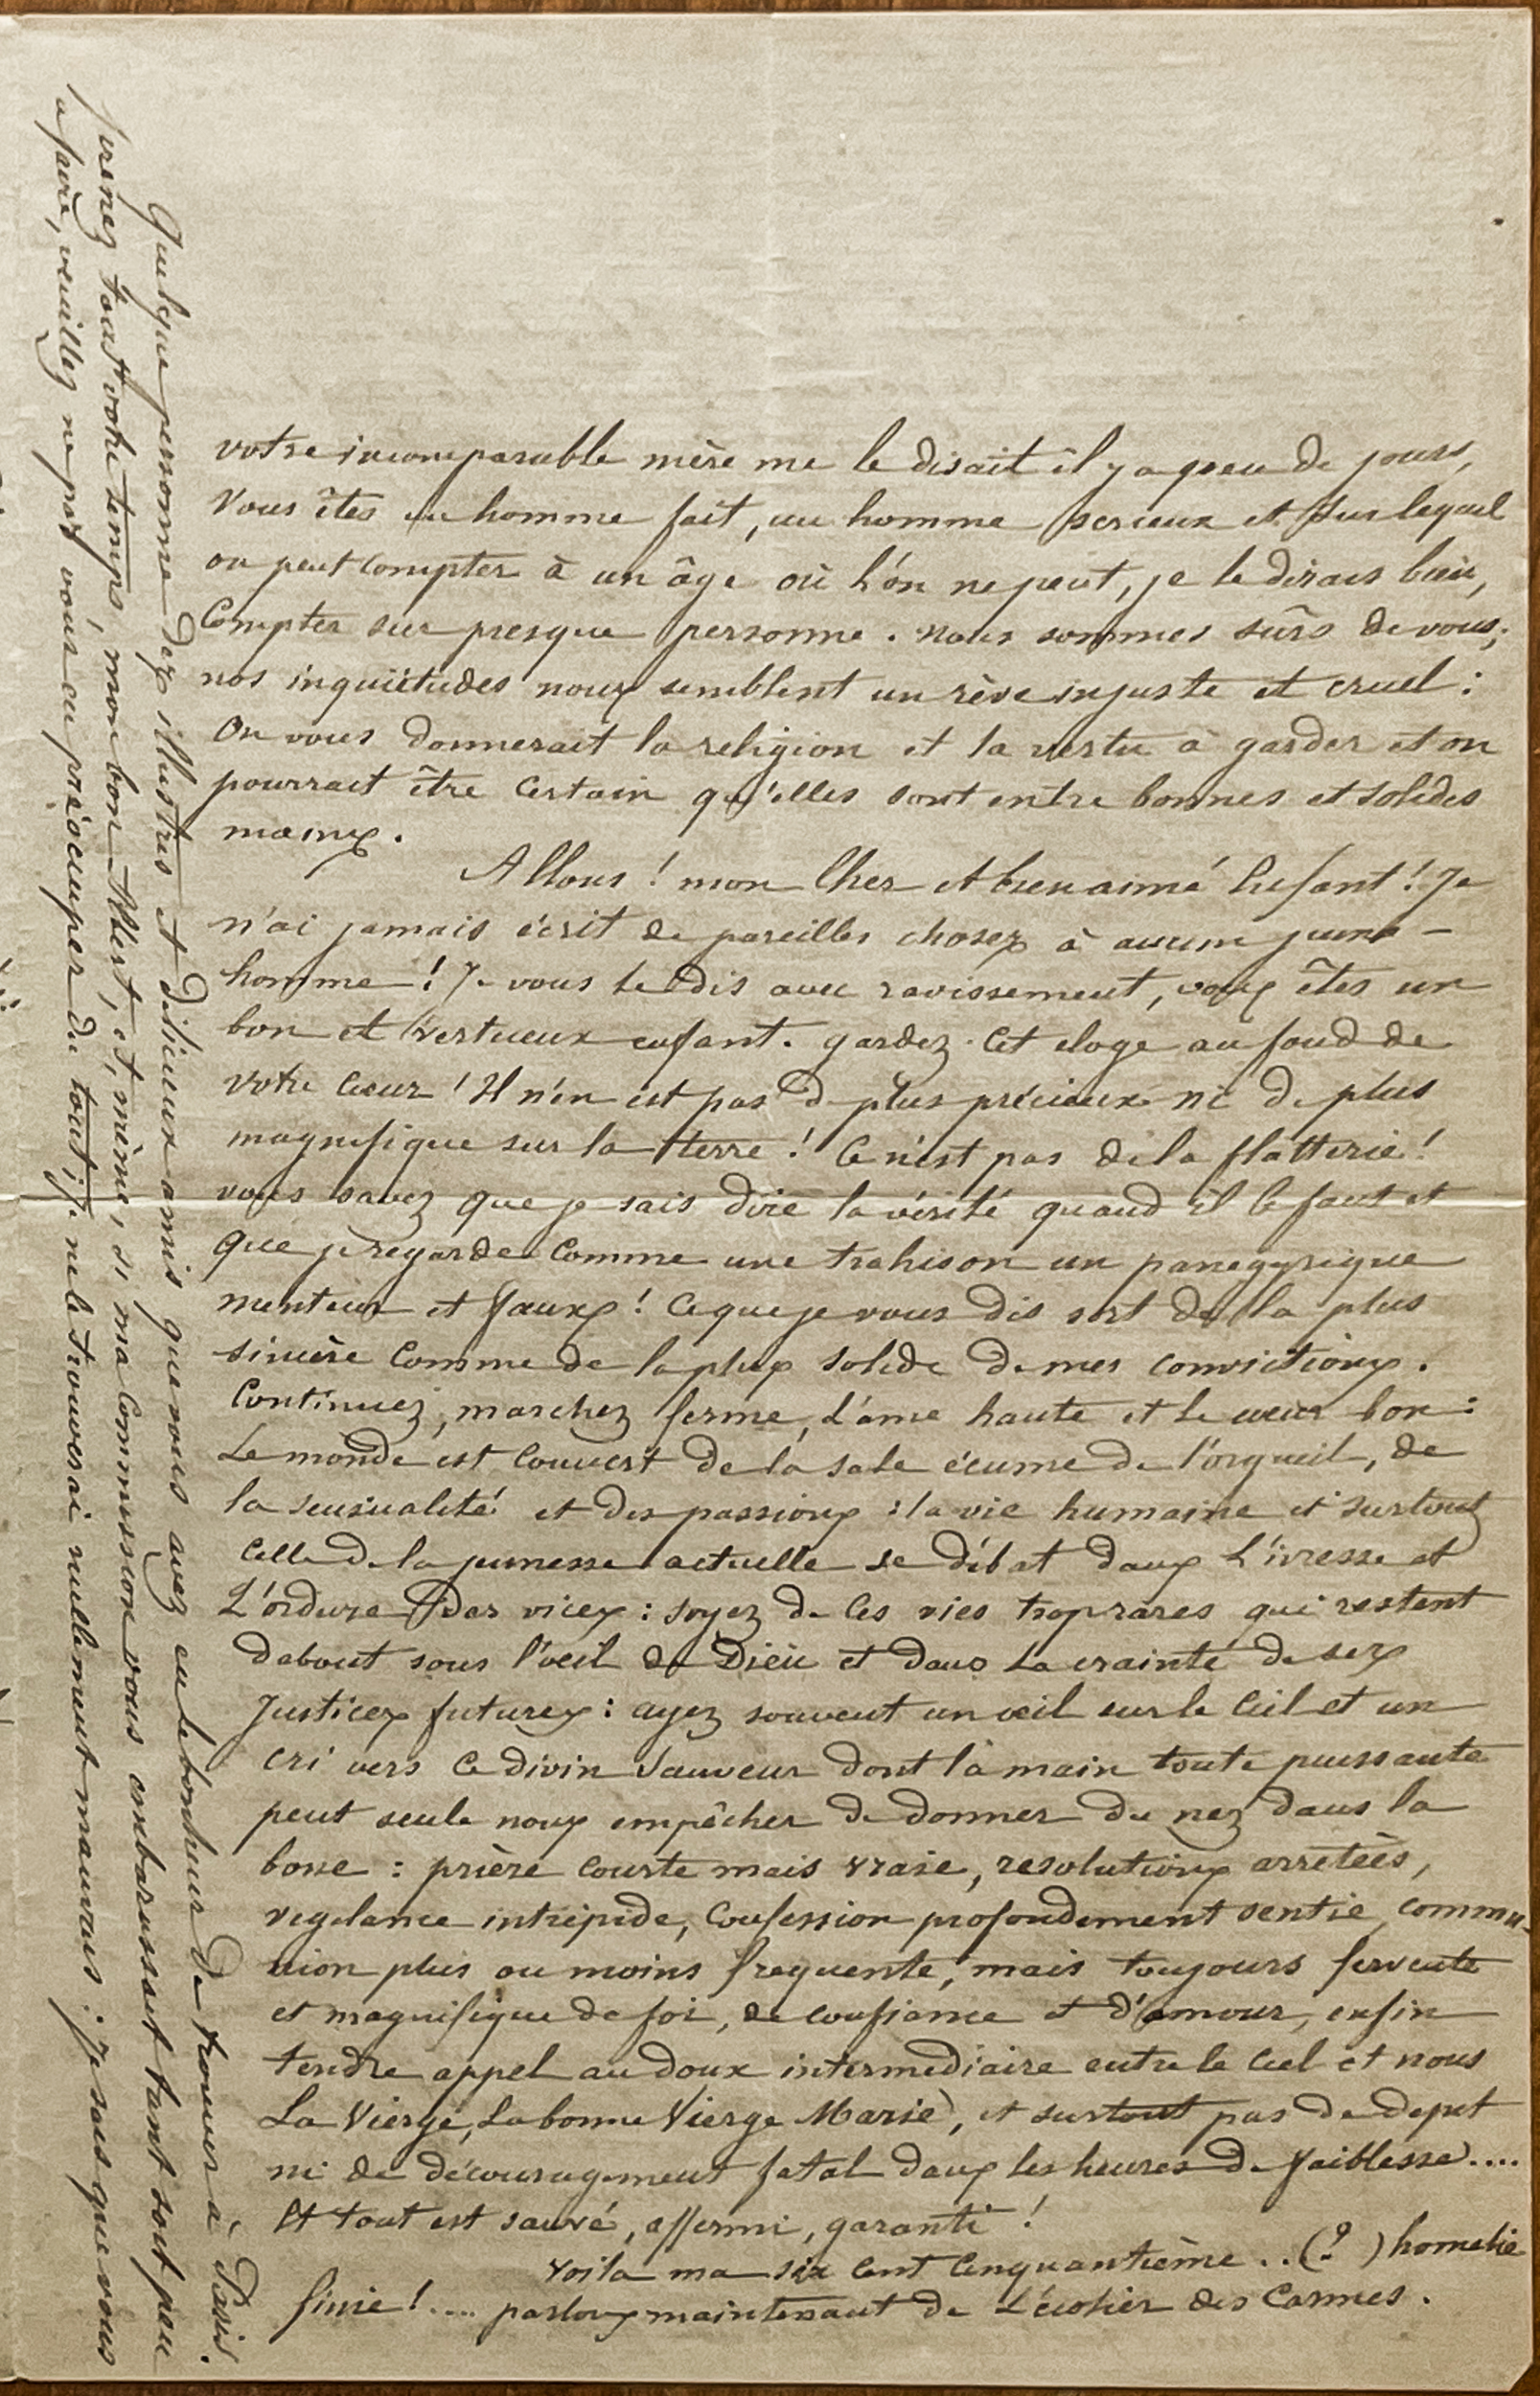 votre incomparable mère me le disait il y a peu de jours,
Vous êtes un homme fait, un homme serieux et sur lequel
on peut compter à un âge où l'on ne peut, je le dirais bien,
Compter sur presque personne. nous sommes sûrs de vous;
nos inquiétudes nous semblent un rêve injuste et cruel:
On vous donnerait la religion et la vertu à garder et on
pourrait être certain qu'elles sont entre bonnes et solides
mains.
Allons! mon cher et bien aimé Enfant! Je
n'ai jamais écrit de pareilles choses à aucun jeune-
homme! Je vous le dis avec ravissement, vous êtes un
bon et vertueux enfant. gardez cet eloge au fond de
votre Cœur! Il n'en est pas de plus précieux ni de plus
magnifique sur la terre! Ce n'est pas de la flatterie!
vous savez que je sais dire la vérité quand il le faut et
que je regarde comme une trahison un panegyrique
menteur et faux! Ce que je vous dis sort de la plus
sincère Comme de la plus solide de mes convictions.
Continuez, marchez ferme, L'ame haute et le cœur bon:
Le monde est Couvert de la sale écume de l'orgueil, de
la sensualité et des passions: la vie humaine et surtout
Celle de la jeunesse actuelle se débat dans L'ivresse et
L'ordure des vices: soyez de Ces vies trop rares qui restent
debout sous l'œil de Dieu et dans La crainte de ses
Justices futures: ayez souvent un œil sur le Ciel et un
cri vers ce divin Sauveur dont la main toute puissante
peut seule nous empêcher de donner du nez dans la
boue: prière courte mais vraie, resolutions arretées,
vigilance intrépide, Confession profondement sentie, commu-
nion plus ou moins frequente, mais toujours fervente
et magnifique de foi, de confiance et d'amour, enfin
tendre appel au doux intermediaire entre le Ciel et nous
La Vierge, La bonne Vierge Marie, et surtout pas de depit
ni de découragement fatal dans les heures de faiblesse....
Et tout est sauvé, affermi, garanti!
Voila ma six Cent Cinquantième .. (?) homelie
finie!.... parlons maintenant de L'écolier des Carmes.
Quelque personne des illustres et délicieux amis que vous avez eu le bonheur de trouver à Paris.
Prenez tout votre temps, mon bon Albert, et, même, si ma Commission vous embarassait tant soit peu
a faire, veuillez ne pas vous en préocuper du tout; je ne le trouverai nullement mauvais: je sais que vous